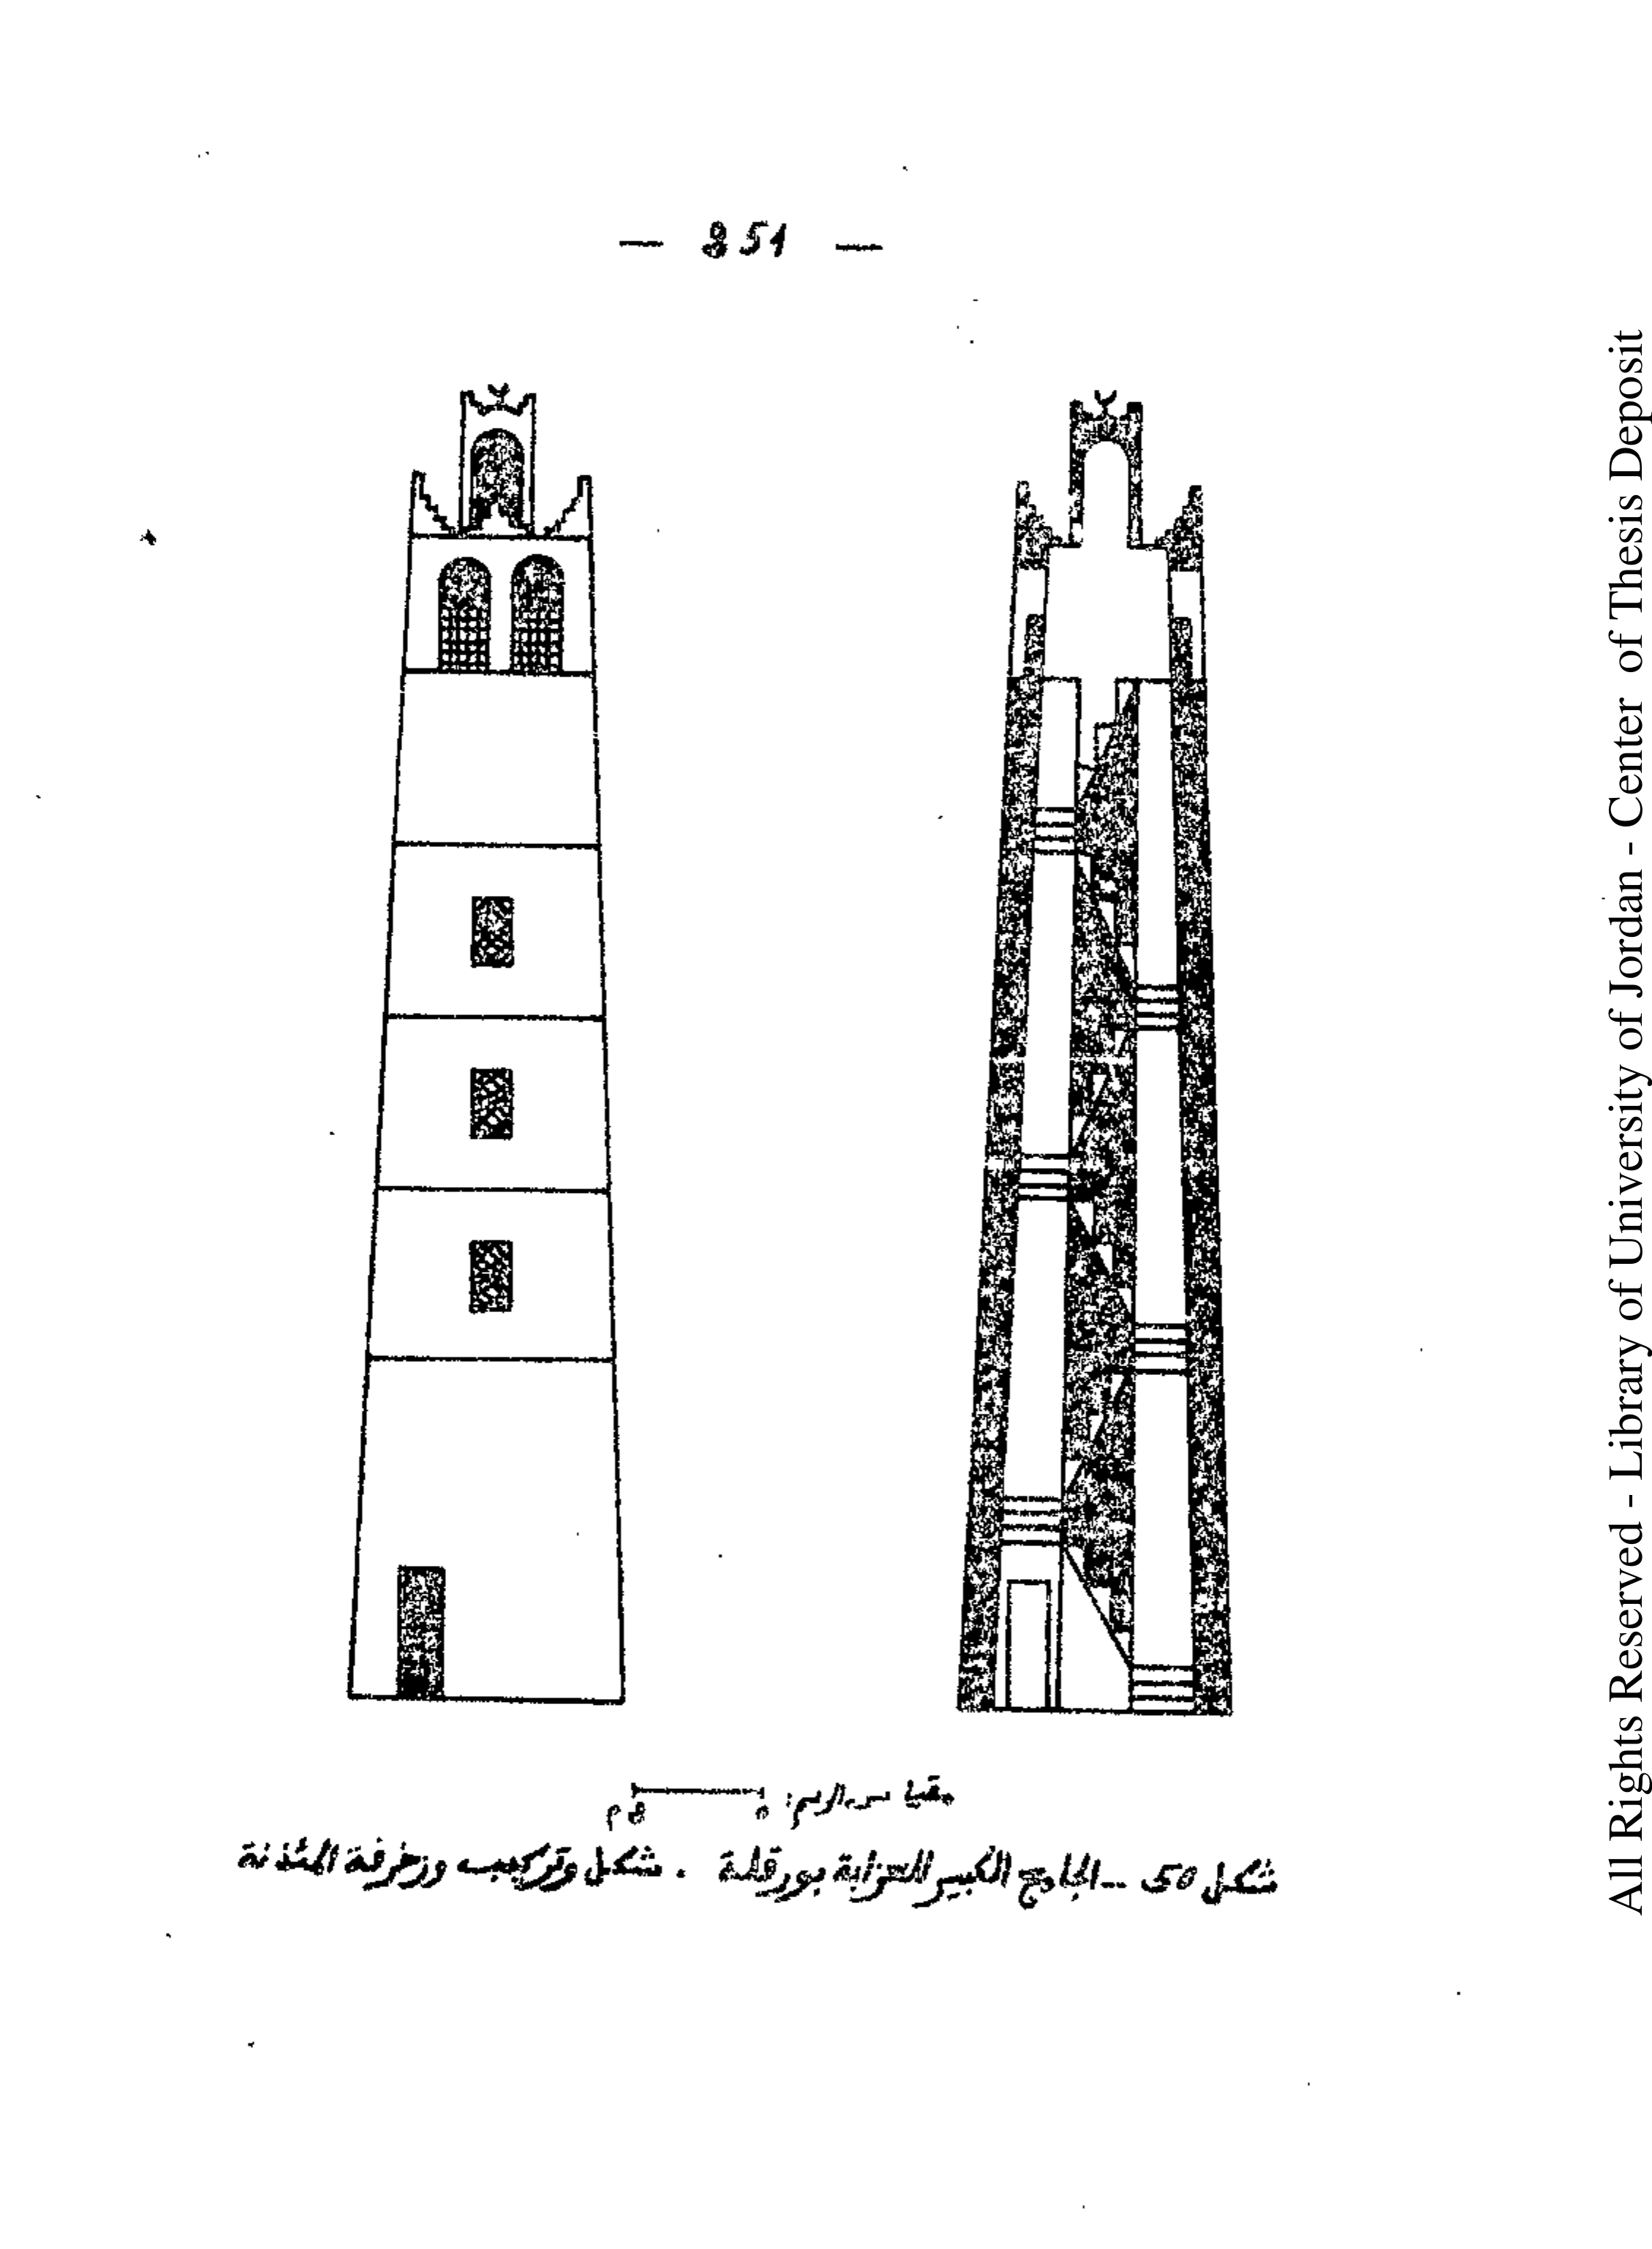 — 851 —
مقياس الرسم:
شكل 50 -- الجامع الكبير للعزابة بورقلة . شكل وتركيب وزخرفة المئذنة
All Rights Reserved - Library of University of Jordan - Center of Thesis Deposit